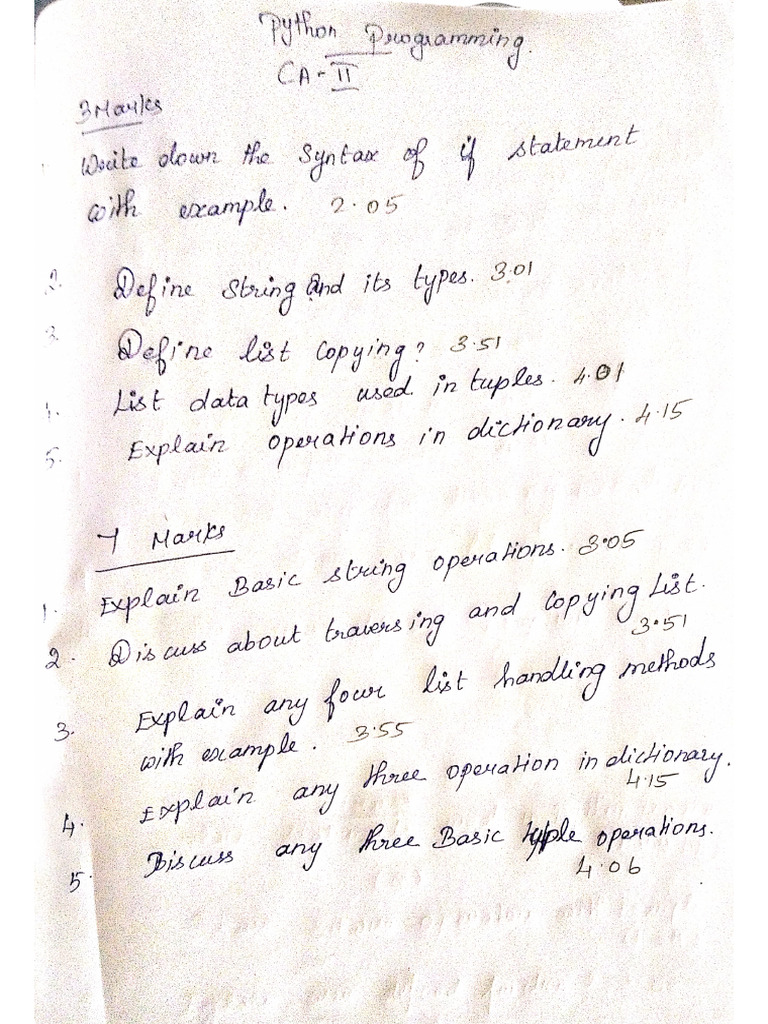 Python Programming.
CA - II
3 Marks
Write down the Syntax of if statement
with example. 2.05
2. Define string and its types. 3.01
3. Define list copying? 3.51
4. List data types used in tuples. 4.01
5. Explain operations in dictionary. 4.15
7 Marks
1. Explain Basic string operations. 3.05
2. Discuss about traversing and copying List.
3.51
3. Explain any four list handling methods
with example. 3.55
4. Explain any three operation in dictionary.
4.15
5. Discuss any three Basic tuple operations.
4.06